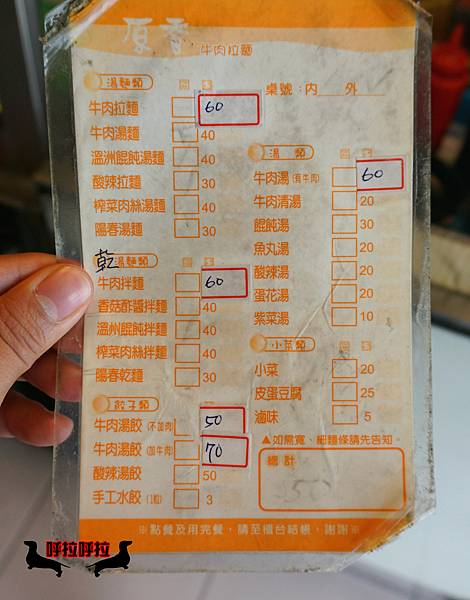 原香 牛肉拉麵
湯麵類
桌號：內 外
牛肉拉麵 60
牛肉湯麵 40
溫洲餛飩湯麵 40
酸辣拉麵 30
榨菜肉絲湯麵 40
陽春湯麵 30
乾湯麵類
牛肉拌麵 60
香菇酢醬拌麵 40
溫州餛飩拌麵 40
榨菜肉絲拌麵 40
陽春乾麵 30
餃子類
牛肉湯餃 (不加肉) 50
牛肉湯餃 (加牛肉) 70
酸辣湯餃 50
手工水餃 (1粒) 3
湯類
牛肉湯 (有牛肉) 60
牛肉清湯 20
餛飩湯 30
魚丸湯 20
酸辣湯 20
蛋花湯 20
紫菜湯 10
小菜類
小菜 20
皮蛋豆腐 25
滷味 5
▲如需寬、細麵條請先告知。
總計
※點餐及用完餐，請至櫃台結帳，謝謝※
呼拉呼拉